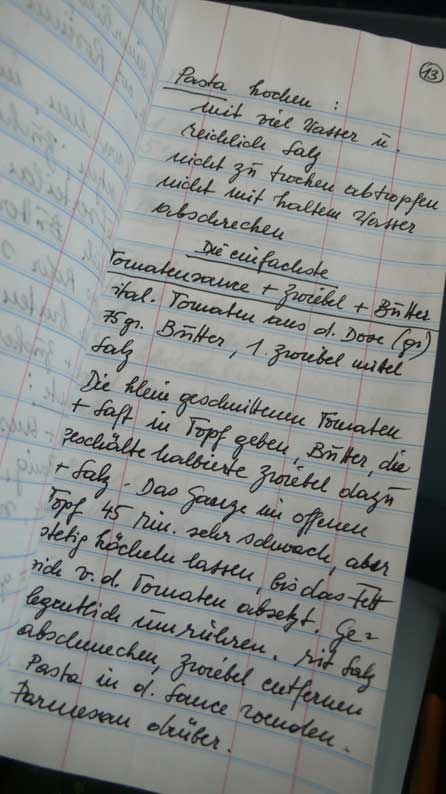 13
Pasta kochen :
mit viel Wasser u.
reichlich Salz
nicht zu trocken abtropfen
nicht mit kaltem Wasser
abschrecken
Die einfachste
Tomatensauce + Zwiebel + Butter
ital. Tomaten aus d. Dose (gr)
75 gr. Butter, 1. Zwiebel mittel
Salz
Die klein geschnittenen Tomaten
+ Saft in Topf geben, Butter, die
geschälte halbierte Zwiebel dazu
+ Salz. Das Ganze im offenen
Topf 45 Min. sehr schwach, aber
stetig köcheln lassen, bis das Fett
sich v. d. Tomaten absetzt. Ge=
legentlich umrühren. Mit Salz
abschmecken, Zwiebel entfernen
Pasta in d. Sauce wenden.
Parmesan drüber.